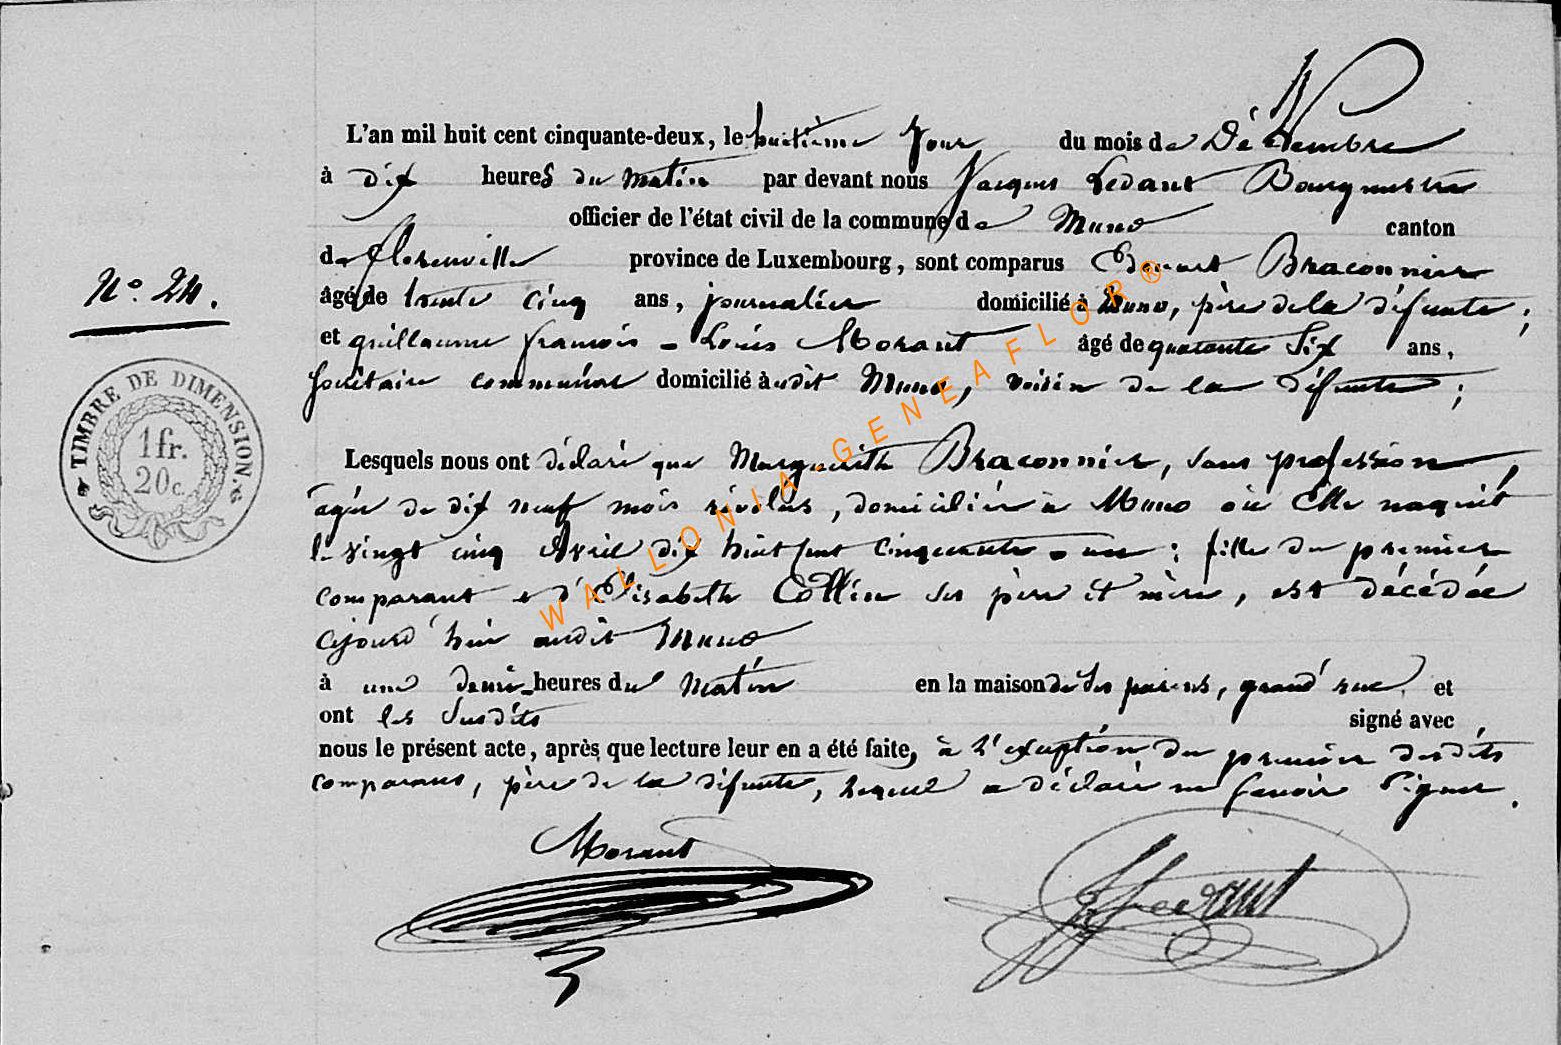 L'an mil huit cent cinquante-deux, le huitième jour du mois de Décembre
à dix heures du matin par devant nous Jacques Ledant Bourgmestre
officier de l'état civil de la commune de Muno canton
de florenville province de Luxembourg, sont comparus Braconnier
âgé de trente cinq ans, journalier domicilié à Muno, père de la défunte;
et guillaume françois - Louis Morant âgé de quarante Six ans,
secrétaire communal domicilié audit Muno, voisin de la défunte;
N°. 24.
TIMBRE DE DIMENSION.
1 fr.
20 c.
Lesquels nous ont déclaré que Marguerith Braconnier, sans profession,
agée de dix neuf mois révolus, domiciliée à Muno où Elle naquit
le vingt cinq Avril dix huit cent cinquante - un; fille du premier
comparant et d'Elisabeth Collin ses père et mère, est décédée
cejourd'hui audit Muno
à une demi heures du matin en la maison de ses parens, grand'rue, et
ont les susdits signé avec
nous le présent acte, après que lecture leur en a été faite, à l'exception du premier desdits
comparans, père de la défunte, lequel a déclaré ne savoir signer.
Morant
JLedant
WALLONIA-GENEAFLOR®